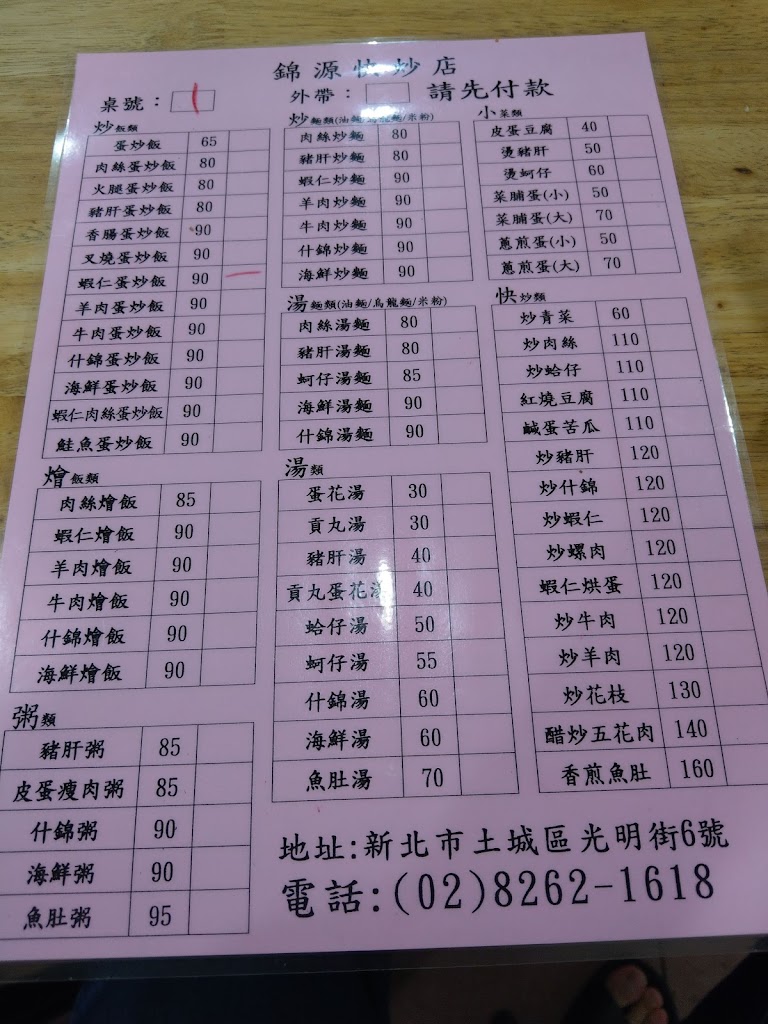 錦源快炒店
桌號： 1 外帶： 請先付款
炒飯類
蛋炒飯 65
肉絲蛋炒飯 80
火腿蛋炒飯 80
豬肝蛋炒飯 80
香腸蛋炒飯 90
叉燒蛋炒飯 90
蝦仁蛋炒飯 90
羊肉蛋炒飯 90
牛肉蛋炒飯 90
什錦蛋炒飯 90
海鮮蛋炒飯 90
蝦仁肉絲蛋炒飯 90
鮭魚蛋炒飯 90
燴飯類
肉絲燴飯 85
蝦仁燴飯 90
羊肉燴飯 90
牛肉燴飯 90
什錦燴飯 90
海鮮燴飯 90
粥類
豬肝粥 85
皮蛋瘦肉粥 85
什錦粥 90
海鮮粥 90
魚肚粥 95
炒麵類(油麵/烏龍麵/米粉)
肉絲炒麵 80
豬肝炒麵 80
蝦仁炒麵 90
羊肉炒麵 90
牛肉炒麵 90
什錦炒麵 90
海鮮炒麵 90
湯麵類(油麵/烏龍麵/米粉)
肉絲湯麵 80
豬肝湯麵 80
蚵仔湯麵 85
海鮮湯麵 90
什錦湯麵 90
湯類
蛋花湯 30
貢丸湯 30
豬肝湯 40
貢丸蛋花湯 40
蛤仔湯 50
蚵仔湯 55
什錦湯 60
海鮮湯 60
魚肚湯 70
小菜類
皮蛋豆腐 40
燙豬肝 50
燙蚵仔 60
菜脯蛋(小) 50
菜脯蛋(大) 70
蔥煎蛋(小) 50
蔥煎蛋(大) 70
快炒類
炒青菜 60
炒肉絲 110
炒蛤仔 110
紅燒豆腐 110
鹹蛋苦瓜 110
炒豬肝 120
炒什錦 120
炒蝦仁 120
炒螺肉 120
蝦仁烘蛋 120
炒牛肉 120
炒羊肉 120
炒花枝 130
醋炒五花肉 140
香煎魚肚 160
地址:新北市土城區光明街6號
電話:(02)8262-1618